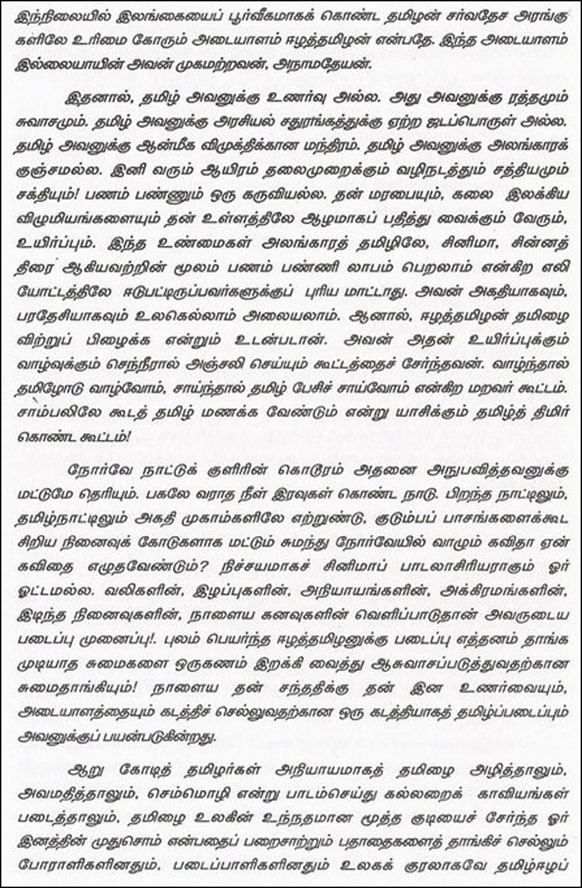 இந்நிலையில் இலங்கையைப் பூர்வீகமாகக் கொண்ட தமிழன் சர்வதேச அரங்கு
களிலே உரிமை கோரும் அடையாளம் ஈழத்தமிழன் என்பதே. இந்த அடையாளம்
இல்லையாயின் அவன் முகமற்றவன், அநாமதேயன்.
இதனால், தமிழ் அவனுக்கு உணர்வு அல்ல. அது அவனுக்கு ரத்தமும்
சுவாசமும். தமிழ் அவனுக்கு அரசியல் சதுரங்கத்துக்கு ஏற்ற ஜடப்பொருள் அல்ல.
தமிழ் அவனுக்கு ஆன்மீக விமுக்திக்கான மந்திரம். தமிழ் அவனுக்கு அலங்காரக்
குஞ்சமல்ல. இனி வரும் ஆயிரம் தலைமுறைக்கும் வழிநடத்தும் சத்தியமும்
சக்தியும்! பணம் பண்ணும் ஒரு கருவியல்ல. தன் மரபையும், கலை இலக்கிய
விழுமியங்களையும் தன் உள்ளத்திலே ஆழமாகப் பதித்து வைக்கும் வேரும்,
உயிர்ப்பும். இந்த உண்மைகள் அலங்காரத் தமிழிலே, சினிமா, சின்னத்
திரை ஆகியவற்றின் மூலம் பணம் பண்ணி லாபம் பெறலாம் என்கிற எலி
யோட்டத்திலே ஈடுபட்டிருப்பவர்களுக்குப் புரிய மாட்டாது. அவன் அகதியாகவும்,
பரதேசியாகவும் உலகெல்லாம் அலையலாம். ஆனால், ஈழத்தமிழன் தமிழை
விற்றுப் பிழைக்க என்றும் உடன்படான். அவன் அதன் உயிர்ப்புக்கும்
வாழ்வுக்கும் செந்நீரால் அஞ்சலி செய்யும் கூட்டத்தைச் சேர்ந்தவன். வாழ்ந்தால்
தமிழோடு வாழ்வோம், சாய்ந்தால் தமிழ் பேசிச் சாய்வோம் என்கிற மறவர் கூட்டம்.
சாம்பலிலே கூடத் தமிழ் மணக்க வேண்டும் என்று யாசிக்கும் தமிழ்த் திமிர்
கொண்ட கூட்டம்!
நோர்வே நாட்டுக் குளிரின் கொடூரம் அதனை அநுபவித்தவனுக்கு
மட்டுமே தெரியும். பகலே வராத நீள் இரவுகள் கொண்ட நாடு. பிறந்த நாட்டிலும்,
தமிழ்நாட்டிலும் அகதி முகாம்களிலே எற்றுண்டு, குடும்பப் பாசங்களைக்கூட
சிறிய நினைவுக் கோடுகளாக மட்டும் சுமந்து நோர்வேயில் வாழும் கவிதா ஏன்
கவிதை எழுதவேண்டும்? நிச்சயமாகச் சினிமாப் பாடலாசிரியராகும் ஓர்
ஓட்டமல்ல. வலிகளின், இழப்புகளின், அநியாயங்களின், அக்கிரமங்களின்,
இடிந்த நினைவுகளின், நாளைய கனவுகளின் வெளிப்பாடுதான் அவருடைய
படைப்பு முனைப்பு!. புலம் பெயர்ந்த ஈழத்தமிழனுக்கு படைப்பு எத்தனம் தாங்க
முடியாத சுமைகளை ஒருகணம் இறக்கி வைத்து ஆசுவாசப்படுத்துவதற்கான
சுமைதாங்கியும்! நாளைய தன் சந்ததிக்கு தன் இன உணர்வையும்,
அடையாளத்தையும் கடத்திச் செல்லுவதற்கான ஒரு கடத்தியாகத் தமிழ்ப்படைப்பும்
அவனுக்குப் பயன்படுகின்றது.
ஆறு கோடித் தமிழர்கள் அநியாயமாகத் தமிழை அழித்தாலும்,
அவமதித்தாலும், செம்மொழி என்று பாடம்செய்து கல்லறைக் காவியங்கள்
படைத்தாலும், தமிழை உலகின் உந்நதமான மூத்த குடியைச் சேர்ந்த ஓர்
இனத்தின் முதுசொம் என்பதைப் பறைசாற்றும் பதாதைகளைத் தாங்கிச் செல்லும்
போராளிகளினதும், படைப்பாளிகளினதும் உலகக் குரலாகவே தமிழ்ஈழப்